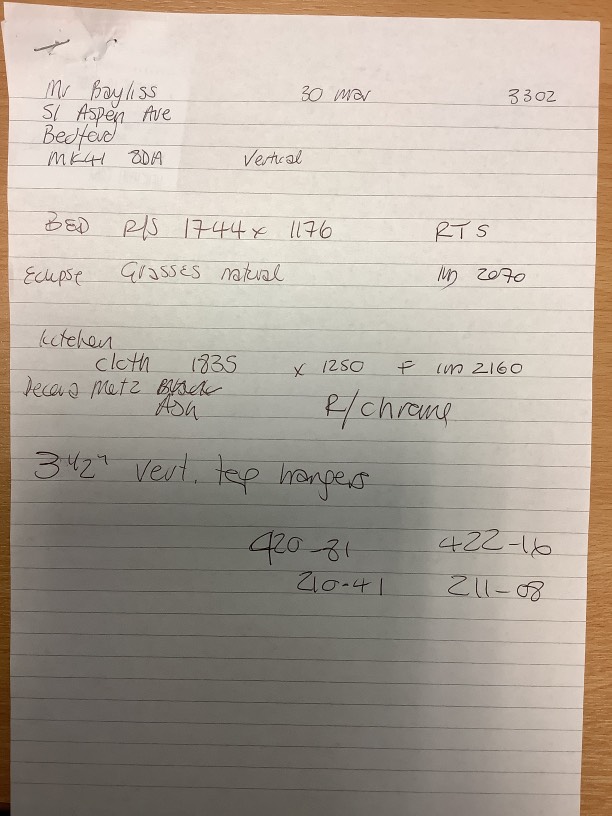 Mr Bayliss 30 Mar 3302
51 Aspen Ave
Bedford
MK41 8DA Vertical
BED R/S 1744 x 1176 RTS
Eclipse Grasses natural 2070
Kitchen
cloth 1835 x 1250 F 2160
Decora Metz
Ash R/chrome
3 1/2" vert. top hangers
420-81 422-16
210-41 211-08